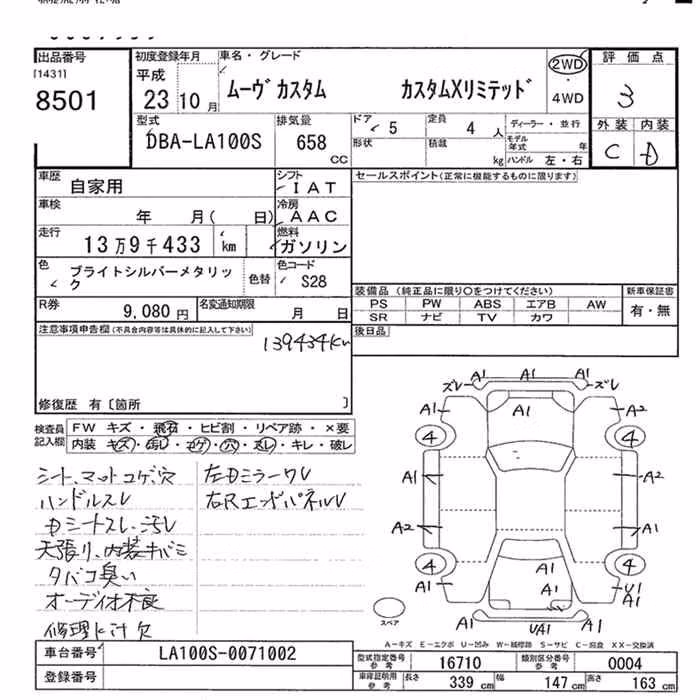 出品番号
[1431]
8501
初度登録年月
平成
23 10 月
車名・グレード
ムーヴ カスタム カスタムXリミテッド
2WD
・
4WD
評価点
3
外装 内装
C D
型式
DBA-LA100S
排気量
658
CC
ドア
5
定員
4 人
形状
積載
kg
ディーラー・並行
モデル年式 年
ハンドル 左・右
車歴
自家用
シフト
IAT
車検
年 月( 日)
冷房
AAC
走行
13万9千433 km
燃料
ガソリン
色
ブライトシルバーメタリック
色替
色コード
S28
R券
9,080 円
名変通知期限
月 日
セールスポイント(正常に機能するものに限ります)
装備品 (純正品に限り○をつけてください)
PS PW ABS エアB AW
SR ナビ TV カワ
新車保証書
有・無
後日品
注意事項申告欄(不具合内容等は具体的に記入して下さい)
139434Km
修復歴 有〔箇所 〕
検査員記入欄
FW キズ・飛石・ヒビ割・リペア跡・×要
内装 キズ・汚レ・コゲ・穴・スレ・キレ・破レ
シート、マットコゲ、穴
ハンドルスレ
Dシートスレ、汚レ
天張リ、内装キバミ
タバコ臭い
オーディオ不良
修理ヒ汁欠
左Dミラーワレ
右Rエンドパネルレ
A1 A1 A1
ズレ ズレ
A1 A1 A2
4 4
A1 A2
A2 A1
4 4
A1 A1 U1
A1 A1
UA1
スペア
A-キズ E-エクボ U-凹み W-補修跡 S-サビ C-腐食 XX-交換済
車台番号
LA100S-0071002
登録番号
型式指定番号
参考
16710
類別区分番号
参考
0004
車庫証明用
参考
長さ
339 cm
幅
147 cm
高さ
163 cm